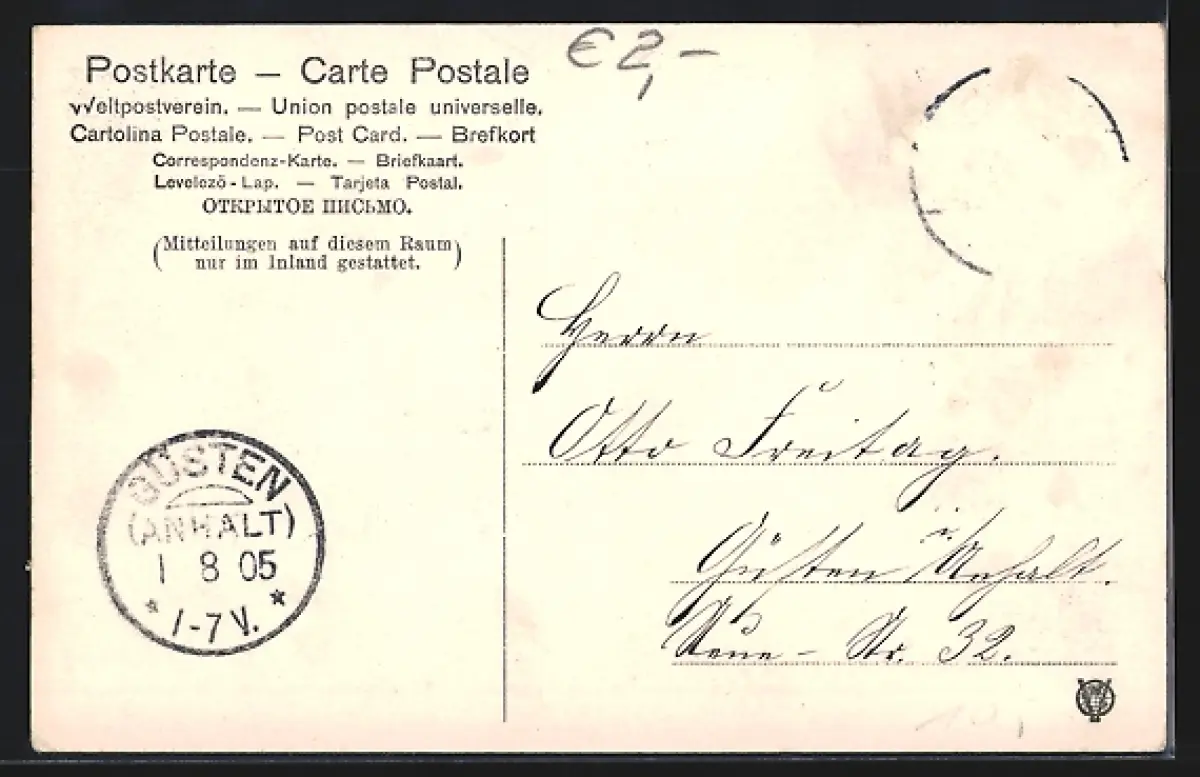 € 2,-
Postkarte — Carte Postale
Weltpostverein. — Union postale universelle.
Cartolina Postale. — Post Card. — Brefkort
Correspondenz-Karte. — Briefkaart.
Levelező-Lap. — Tarjeta Postal.
ОТКРЫТОЕ ПИСЬМО.
(Mitteilungen auf diesem Raum
nur im Inland gestattet.)
Herrn
Otto Freitag.
Güsten i/Anhalt.
Neue - Str. 32.
GÜSTEN
(ANHALT)
1 8 05
* 1-7 V. *